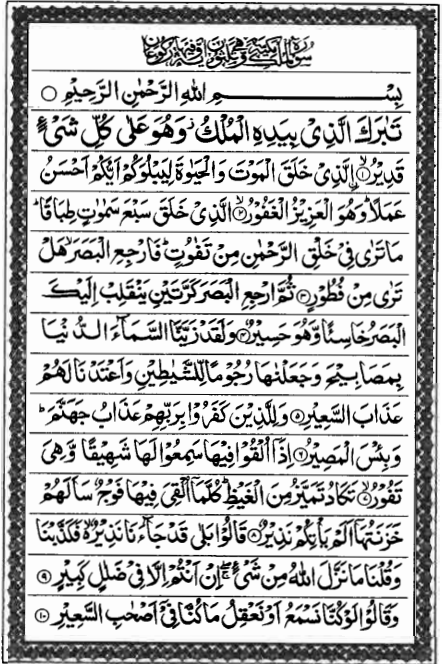 سورة الملك مكية وهي ثلثون اية وفيها ركوعان
بِسْمِ اللهِ الرَّحْمٰنِ الرَّحِيْمِ ○
تَبٰرَكَ الَّذِىْ بِيَدِهِ الْمُلْكُ ز وَهُوَ عَلٰى كُلِّ شَىْءٍ
قَدِيْرُ ۨ ﴿۱﴾ الَّذِىْ خَلَقَ الْمَوْتَ وَالْحَيٰوةَ لِيَبْلُوَكُمْ اَيُّكُمْ اَحْسَنُ
عَمَلًا ؕ وَهُوَ الْعَزِيْزُ الْغَفُوْرُ ﴿۲﴾ الَّذِىْ خَلَقَ سَبْعَ سَمٰوٰتٍ طِبَاقًا ؕ
مَا تَرٰى فِىْ خَلْقِ الرَّحْمٰنِ مِنْ تَفٰوُتٍ ؕ فَارْجِعِ الْبَصَرَ ۙ هَلْ
تَرٰى مِنْ فُطُوْرٍ ﴿۳﴾ ثُمَّ ارْجِعِ الْبَصَرَ كَرَّتَيْنِ يَنْقَلِبْ اِلَيْكَ
الْبَصَرُ خَاسِئًا وَّهُوَ حَسِيْرٌ ﴿۴﴾ وَلَقَدْ زَيَّنَّا السَّمَآءَ الدُّنْيَا
بِمَصَابِيْحَ وَجَعَلْنٰهَا رُجُوْمًا لِّلشَّيٰطِيْنِ وَاَعْتَدْنَا لَهُمْ
عَذَابَ السَّعِيْرِ ﴿۵﴾ وَلِلَّذِيْنَ كَفَرُوْا بِرَبِّهِمْ عَذَابُ جَهَنَّمَ ؕ
وَبِئْسَ الْمَصِيْرُ ﴿۶﴾ اِذَآ اُلْقُوْا فِيْهَا سَمِعُوْا لَهَا شَهِيْقًا وَّهِىَ
تَفُوْرُ ﴿۷﴾ تَكَادُ تَمَيَّزُ مِنَ الْغَيْظِ ؕ كُلَّمَآ اُلْقِىَ فِيْهَا فَوْجٌ سَاَلَهُمْ
خَزَنَتُهَآ اَلَمْ يَاْتِكُمْ نَذِيْرٌ ﴿۸﴾ قَالُوْا بَلٰى قَدْ جَآءَنَا نَذِيْرٌ ۙ فَكَذَّبْنَا
وَقُلْنَا مَا نَزَّلَ اللهُ مِنْ شَىْءٍ ۚ اِنْ اَنْتُمْ اِلَّا فِىْ ضَلٰلٍ كَبِيْرٍ ﴿۹﴾
وَقَالُوْا لَوْ كُنَّا نَسْمَعُ اَوْ نَعْقِلُ مَا كُنَّا فِىْٓ اَصْحٰبِ السَّعِيْرِ ﴿۱۰﴾